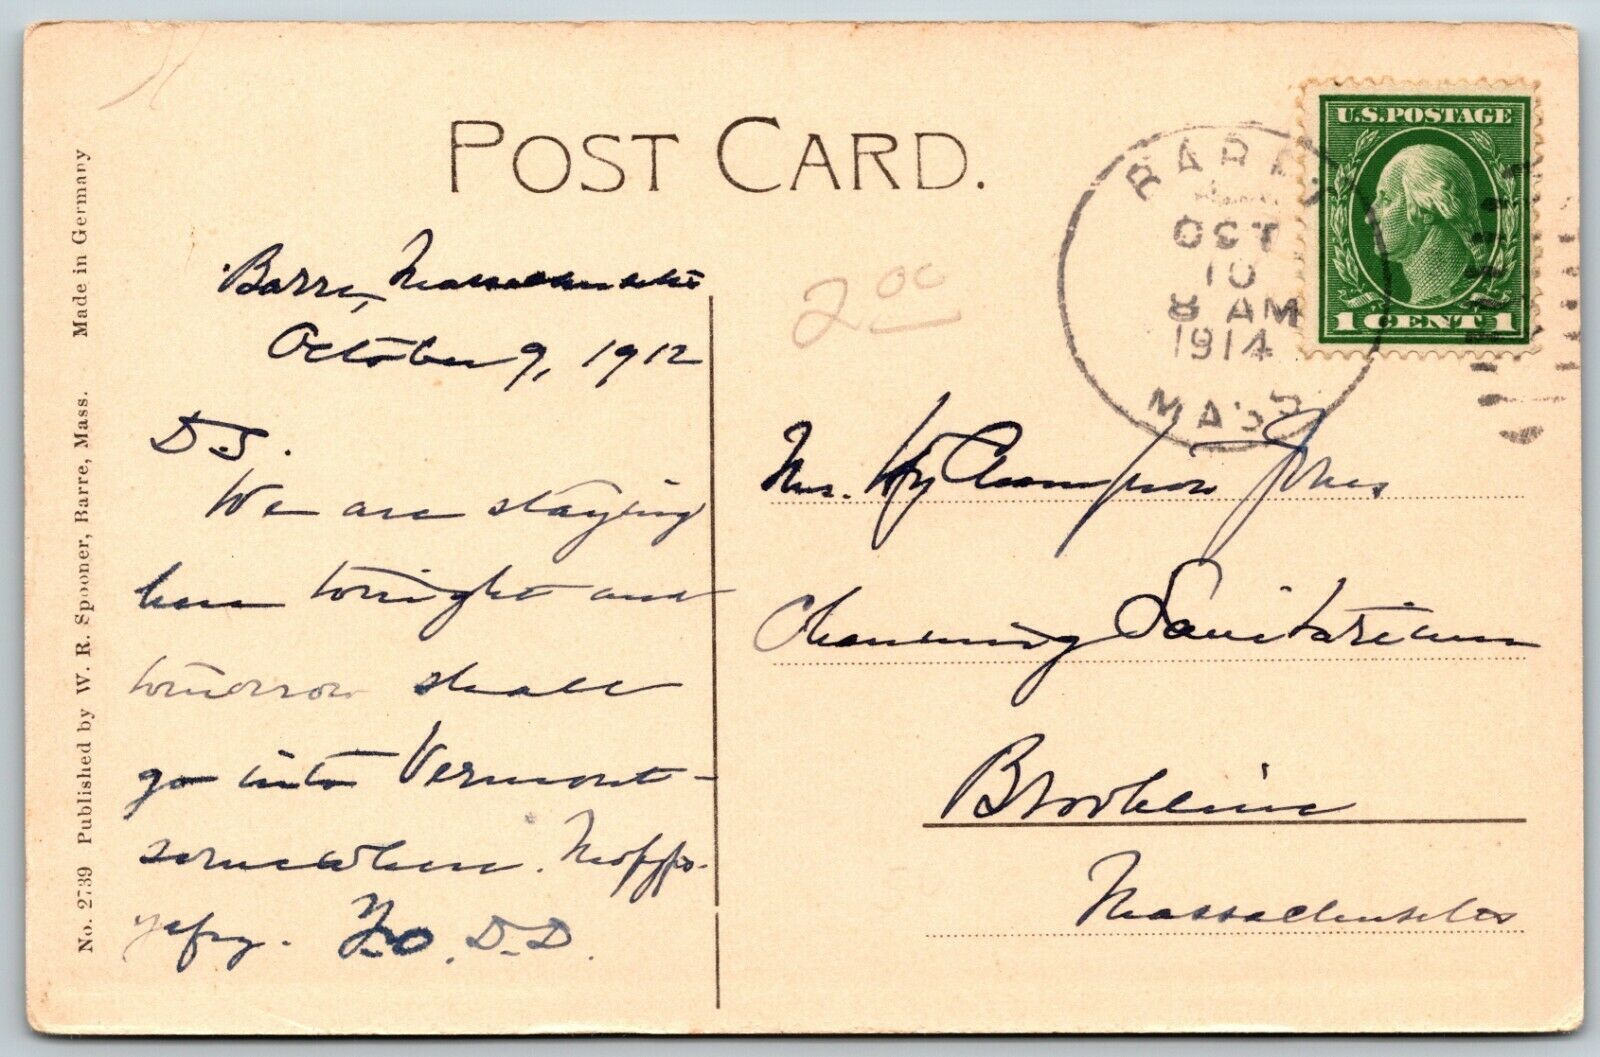 POST CARD.
BARRE
OCT
10
8 AM
1914
MASS
U.S. POSTAGE
1 CENT 1
2 00
Barre, Massachusetts
October 9, 1912
D.S.
We are staying
here tonight and
tomorrow shall
go into Vermont -
somewhere.
Yo. D.D.
Mrs. Hy Champion Jones
Channing Sanitarium
Brookline
Massachusetts
No. 2739 Published by W. R. Spooner, Barre, Mass. Made in Germany